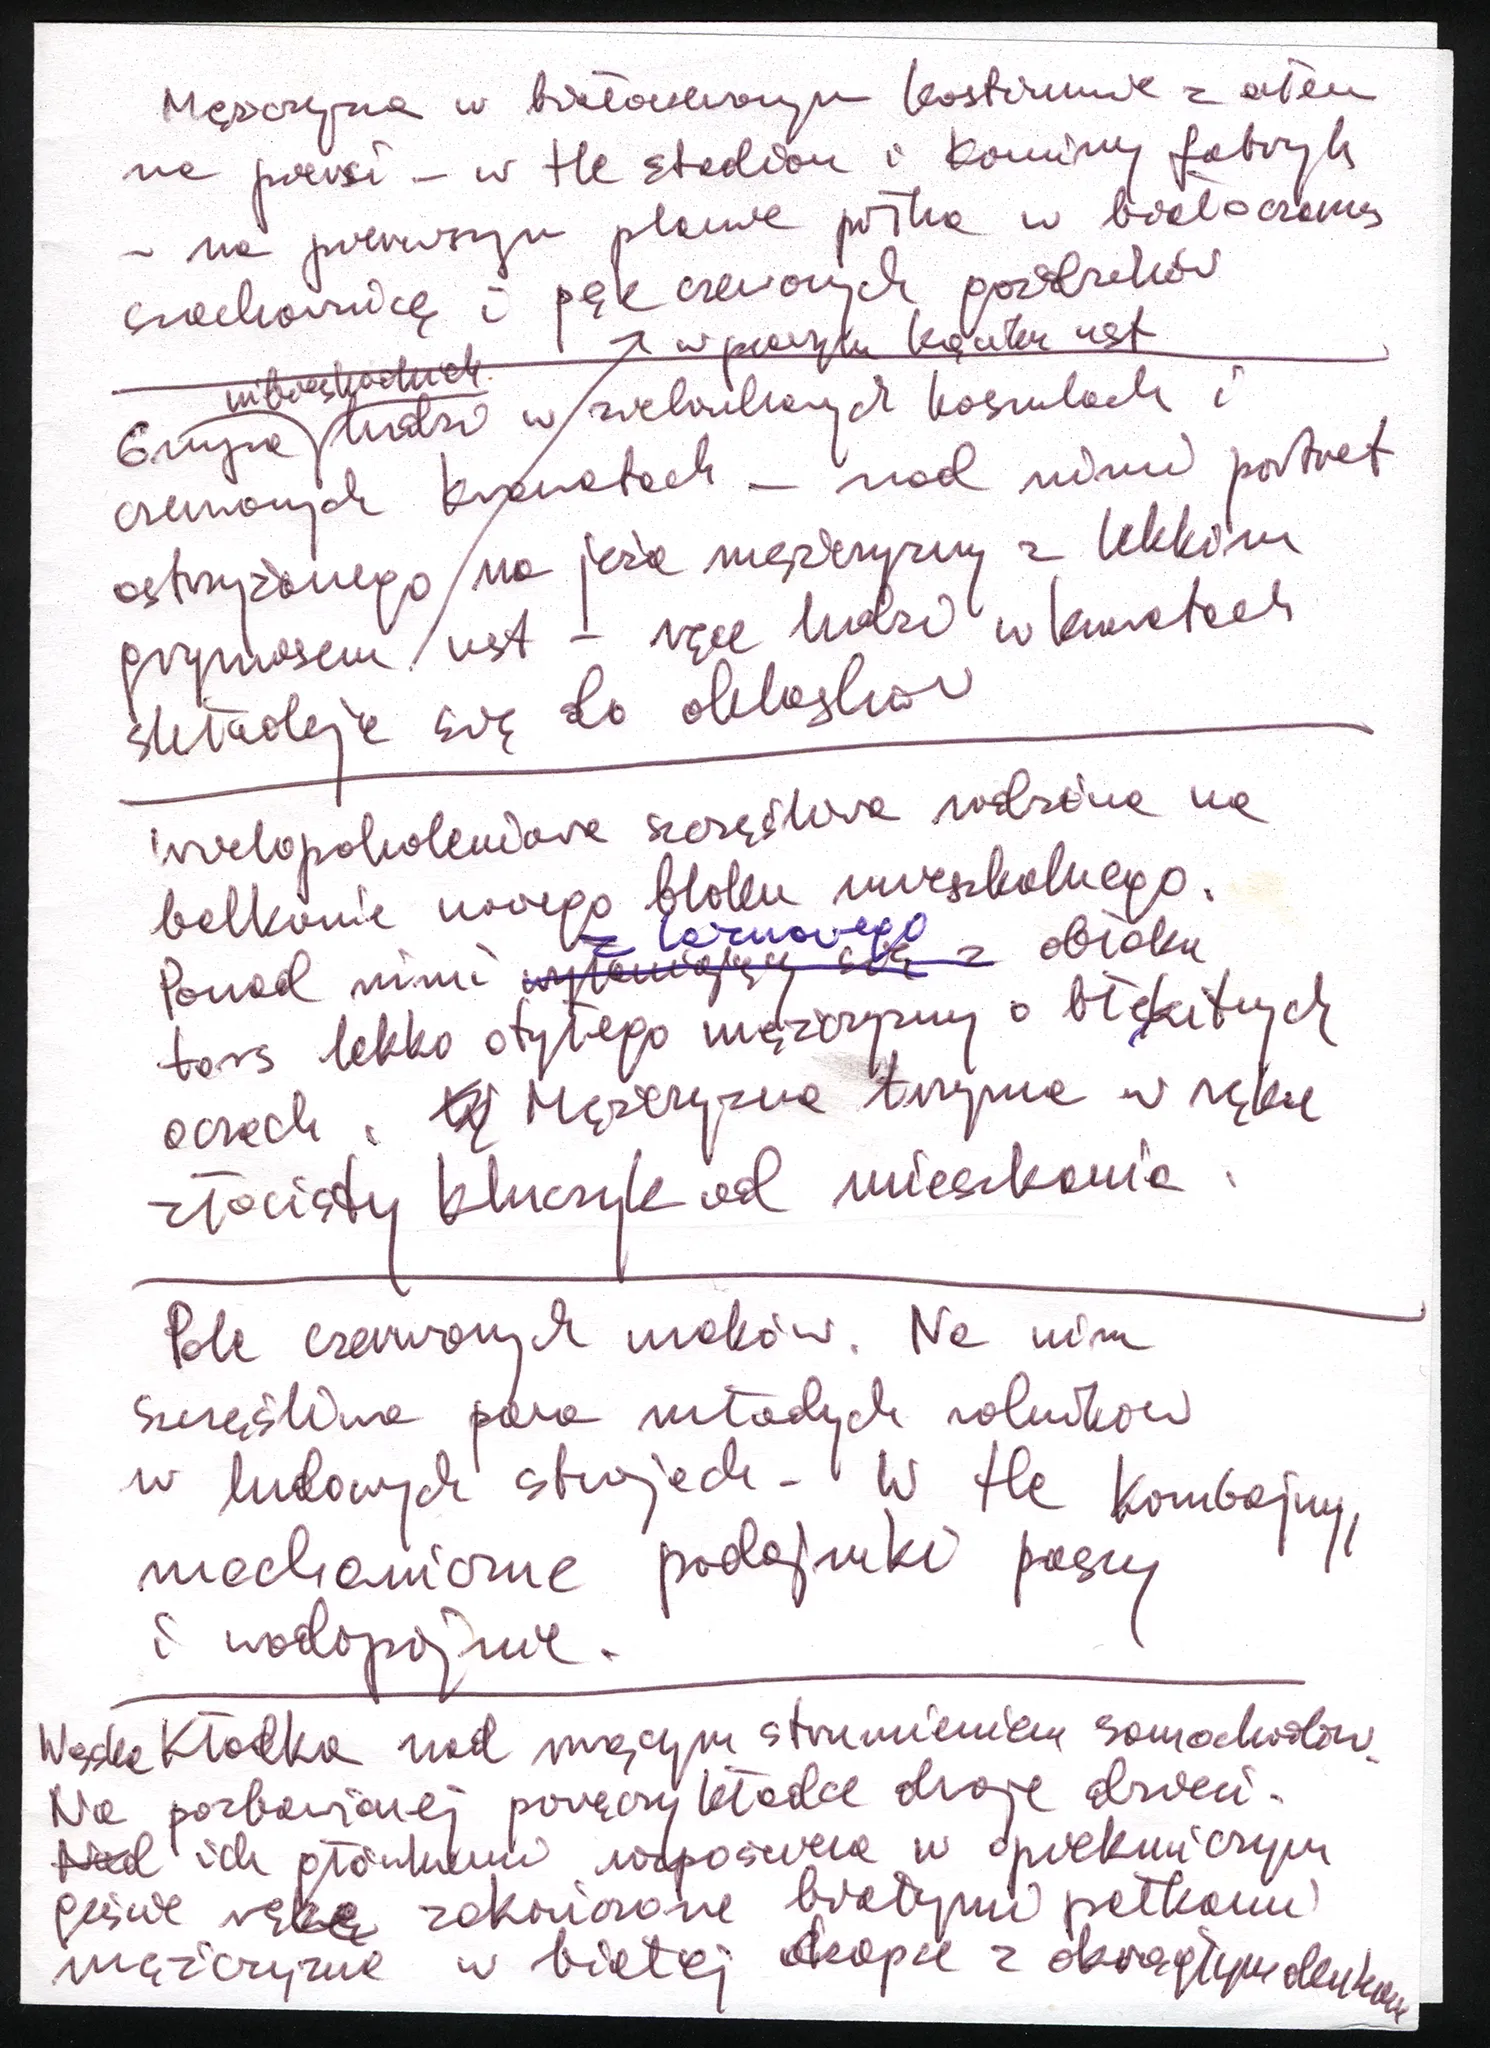 Mężczyzna w białoczerwonym kostiumie z orłem
na piersi – w tle stadion i kominy fabryk
– na pierwszym planie piłka w białoczarną
szachownicę i pęk czerwonych goździków
w prawym kąciku ust
Grupa ludzi w zielonkawych koszulach i
czerwonych krawatach – nad nimi portret
ostrzyżonego na jeża mężczyzny z lekkim
grymasem ust – ręce ludzi w krawatach
składają się do oklasków
Wielopokoleniowa szczęśliwa rodzina na
balkonie nowego bloku mieszkalnego.
z
Ponad nimi wyłaniający się z obłoku
tors lekko otyłego mężczyzny o błękitnych
oczach. Mężczyzna trzyma w ręku
złocisty kluczyk od mieszkania.
Pole czerwonych maków. Na nim
szczęśliwa para młodych rolników
w ludowych strojach – W tle kombajny,
mechaniczne podajniki paszy
i wodopojnie.
Wąska kładka nad rwącym strumieniem samochodów.
Na pozbawionej poręczy kładce dwoje dzieci.
Nad ich główkami rozpościera w opiekuńczym
geście ręce zakończone białymi pałkami
mężczyzna w białej czapce z okrągłym denkiem